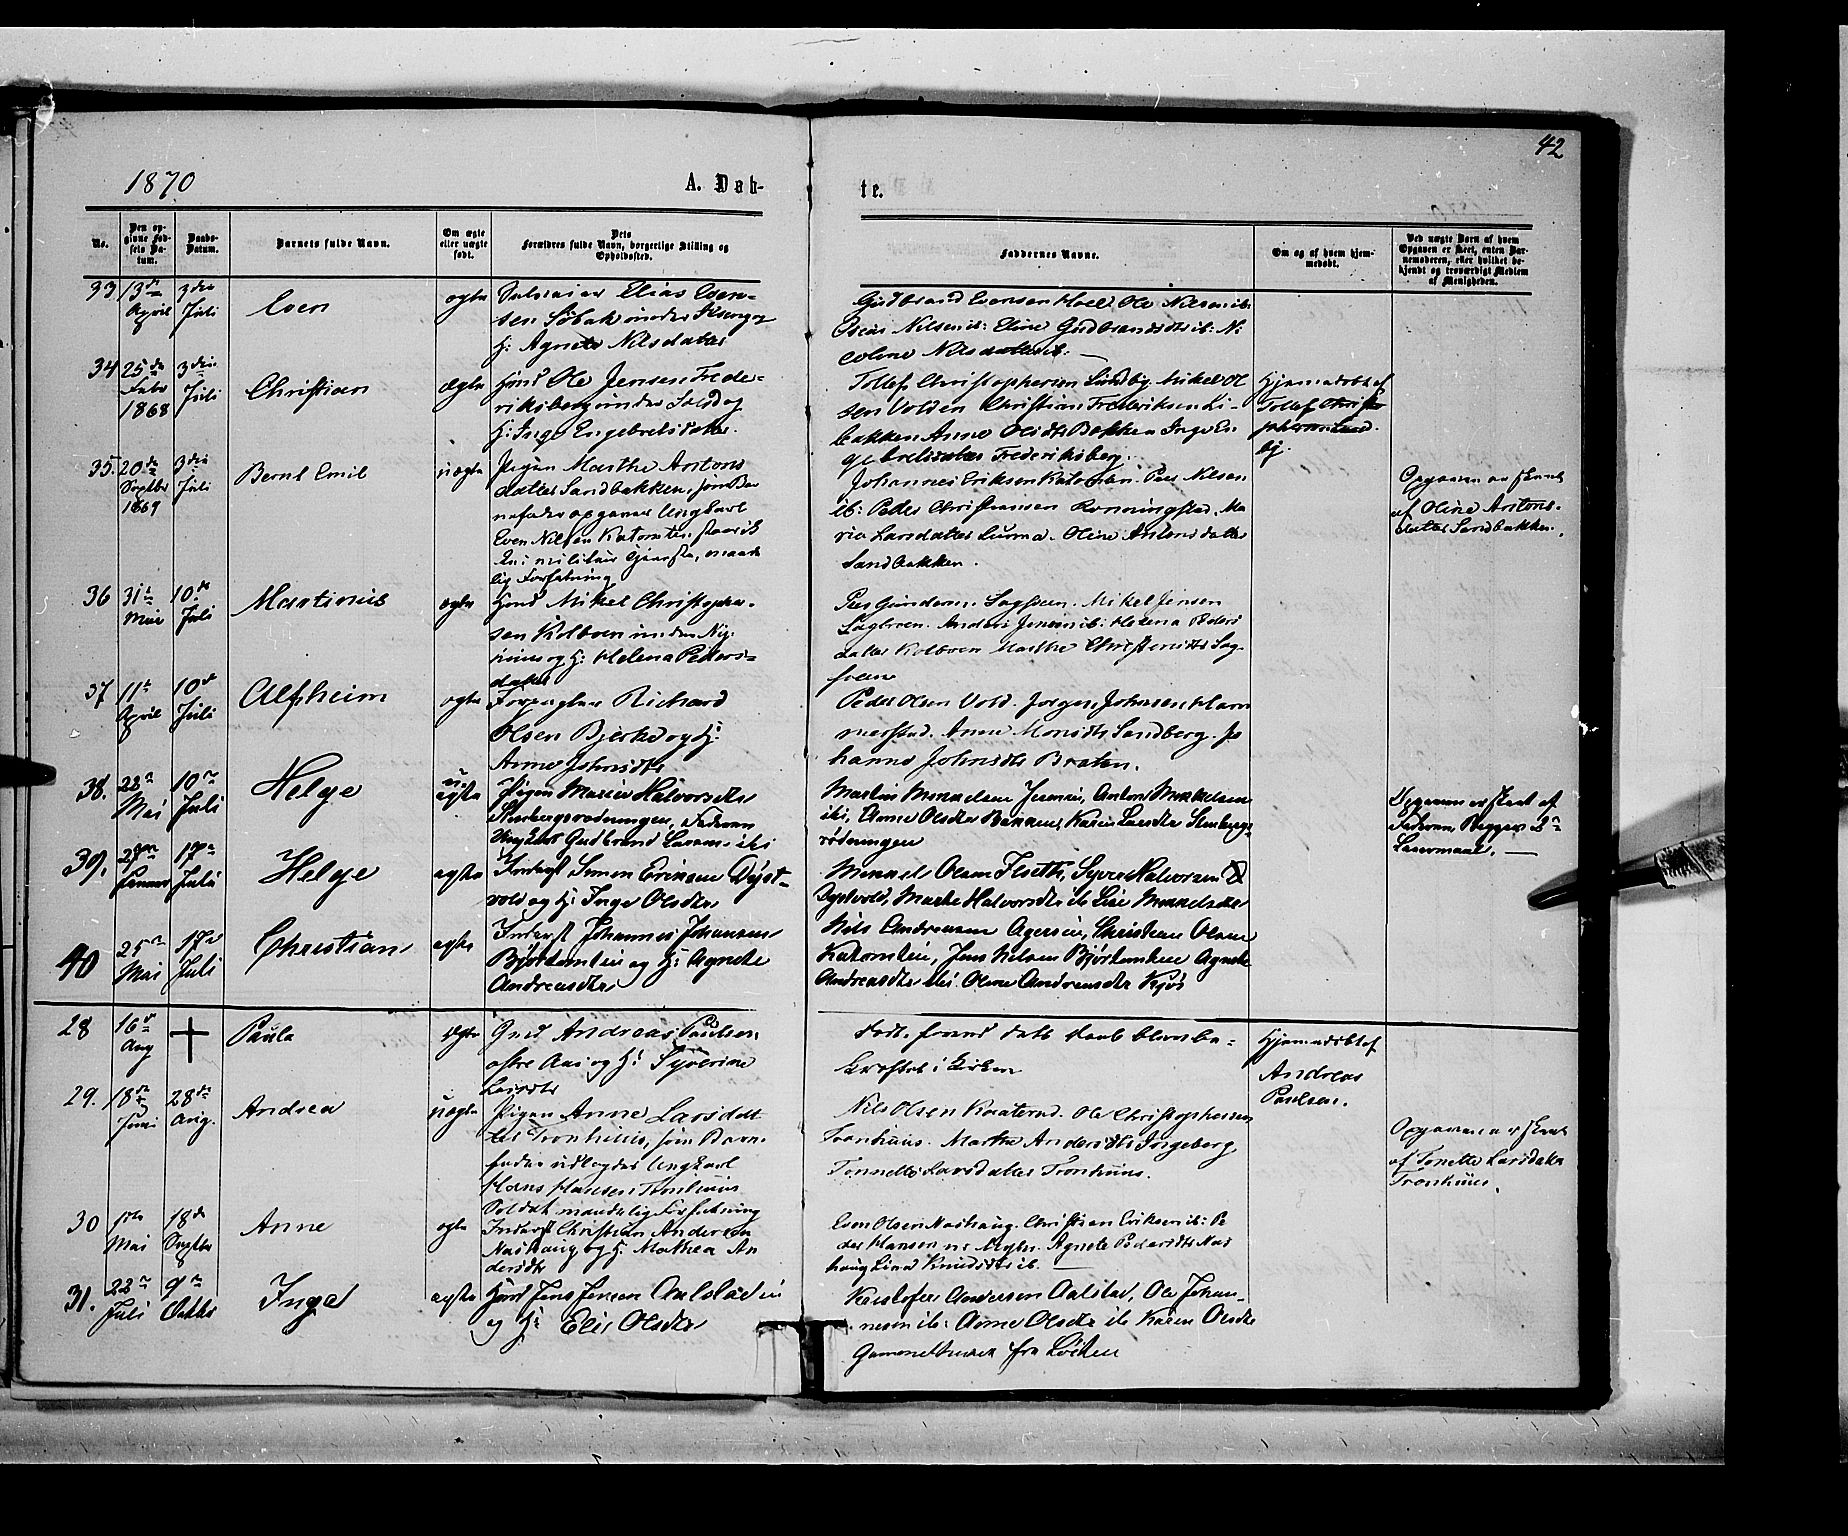 42
1870
A. Døb-
te.
No.
Den opgivne Fødsels Datum.
Daabs-Datum.
Barnets fulde Navn.
Om ægte eller uægte født.
Dets Forældres fulde Navn, borgerlige Stilling og Opholdssted.
Faddernes Navne.
Om og af hvem hjemmedøbt.
Ved uægte Børn af hvem Opgaven er skeet, enten Barnemoderen, eller hvilket bekjendt og troværdigt Medlem af Menigheden.
33 13de April 3die Juli Even ægte
Elias Even-
sen Søbak under
H: Agnete Nilsdatter
Gudbrand Evensen Ole Nilsen ib:
Oscar Nilsen ib: Eline Gudbrandsdtr ib: Ni
coline Nilsdatter ib: —
34 25de Febr 1868 3die Juli Christian ægte
Husd Ole Jensen Frede-
riksberg under og
H: Inge Engebretsdatter.
Tollef Christophersen Lundby Mikel Ol
sen Volden Christian Frederiksen Li-
bakken Anne Olsdtr Bakken Inge En
gebretsdatter Frederiksberg.
Hjemmedøbt af
Tollef Christo
phersen Lund
by.
35. 20de Septbr 1869 3die Juli Bernt Emil uægte
Pigen Marthe Antons
datter Sandbakken, som Bar
nefader opgives Ungkarl
Even Nilsen
militair Tjeneste, maade
lig Forfatning
Johannes Eriksen Peer Nilsen
ib: Peder Christiansen Ma
ria Larsdatter Oline Antonsdatter
Sandbakken.
Opgaven er skeet
af Oline Antons-
datter Sandbakken.
36 31te Mai 10de Juli Martinus ægte
Husd Mikel Christopher-
sen Kolbven under Ny-
huus og H: Helena Peders-
datter
Peer Gundersen Mikel Jensen
Anders Jensen ib: Helena Peders
datter Kolbven Marthe
37 11te April 10de Juli Alfheim ægte
Forpagter Richard
Olsen Bjerke og H:
Anne Johnsdtr
Peder Olsen Vold. Jørgen Johnsen Ham
merstad. Anne Monsdtr Sandberg. Jo
hanne Johnsdtr Braten.
38. 22de Mai 10de Juli Helge uægte
Pigen Marie Halvorsdtr
Stenbergsrødningen, Faderen
Ungkarl Gudbrand Larsen
Martin Mikkelsen Anton Mikkelsen
ibi, Anne Olsdtr Bakken, Karen Larsdtr Stenbergs
rødningen
Opgaven er skeet af
Faderen, Begges 2de
Leiermaal. —
39. 27de Januar 17de Juli Helge ægte
Inderst Simen Eriksen Dyst-
vold og H: Inger Olsdtr
Mikkel Olsen Syver Halvorsen
Dystvold, Marte Halvorsdtr ib Lise Mikkelsdtr
40 25de Mai 17de Juli Christian ægte
Inderst Johannes Johansen
og H: Agnete
Andreasdtr
Nils Andreassen Christian Olsen
Jens Nilsen Agnete
Andreasdtr ibi. Oline Andreasdtr Kjøs
28 16de Aug Paula ægte
Gmd Andreas Paulsen
østre Aas og H: Syverine
Larsdtr
Døde forend dets Daab blev be-
kræftet i Kirken
Hjemmedøbt af
Andreas
Paulsen.
29. 18de Juni 28de Aug. Andrea uægte
Pigen Anne Larsdat
ter Tronhuus, som Barne
fader udlægges Ungkarl
Hans Hansen Tronhuus
Soldat maadelig Forfatning
Nils Olsen Ole Christophersen
Tronhuus. Marthe Andersdtr Ingeberg
Tonnette Larsdatter Tronhuus.
Opgaven er skeet
af Tonette Larsdatter
Tronhuus.
30 1ste Mai 18de Septbr Anne ægte
Inderst Christian Andersen
Nashaug og H: Mathea An
dersdtr
Even Olsen Nashaug. Christian Eriksen ib: Pe
der Hansen Agnete Pedersdtr Nas
haug Lina Knudsdtr ib. —
31. 22de Juli 9de Octbr Inga ægte
Husd Jens Jensen Aalstad
og H: Elis Olsdtr
Kristofer Andersen Aalstad, Ole Johan-
nesen ib: Anne Olsdtr ib Karen Olsdtr
fra Løiten